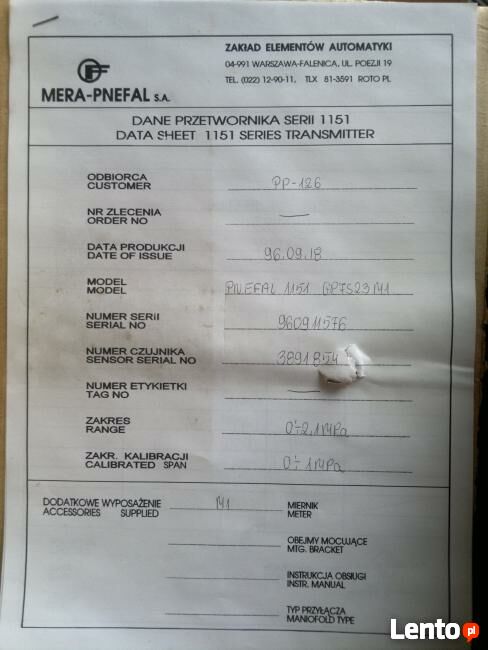 ZAKŁAD ELEMENTÓW AUTOMATYKI
04-991 WARSZAWA-FALENICA, UL. POEZJI 19
TEL. (022) 12-90-11, TLX 81-3591 ROTO PL
MERA-PNEFAL S.A.
DANE PRZETWORNIKA SERII 1151
DATA SHEET 1151 SERIES TRANSMITTER
ODBIORCA
CUSTOMER PP-126
NR ZLECENIA
ORDER NO —
DATA PRODUKCJI
DATE OF ISSUE 96.09.18
MODEL
MODEL PNEFAL 1151 GP7S23M1
NUMER SERII
SERIAL NO 960911576
NUMER CZUJNIKA
SENSOR SERIAL NO 3891854
NUMER ETYKIETKI
TAG NO —
ZAKRES
RANGE 0÷2,1MPa
ZAKR. KALIBRACJI
CALIBRATED SPAN 0÷1MPa
DODATKOWE WYPOSAŻENIE M1 MIERNIK
ACCESSORIES SUPPLIED METER
OBEJMY MOCUJĄCE
MTG. BRACKET
INSTRUKCJA OBSŁUGI
INSTR. MANUAL
TYP PRZYŁĄCZA
MANIOFOLD TYPE
Lento.pl